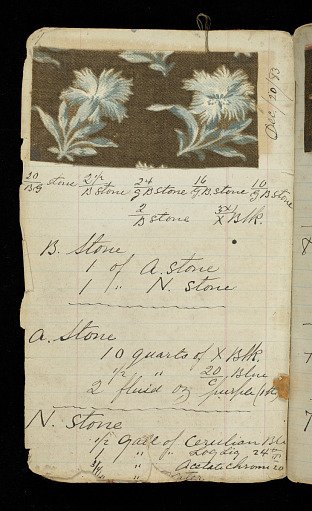 Dec/20/93
20 B & G stone 2 1/2 B stone 24 g B stone 16 g B stone 10 g B stone
2 B stone X Blk.
B. Stone
1 of A. stone
1 " N. stone
A. Stone
10 quarts of X Blk.
1/2 " " 20 Blue
2 fluid oz purple
N. Stone
1/2 Gall of Cerulian Bl
1 " " Logdig 24
" " Acetate Chromi 20